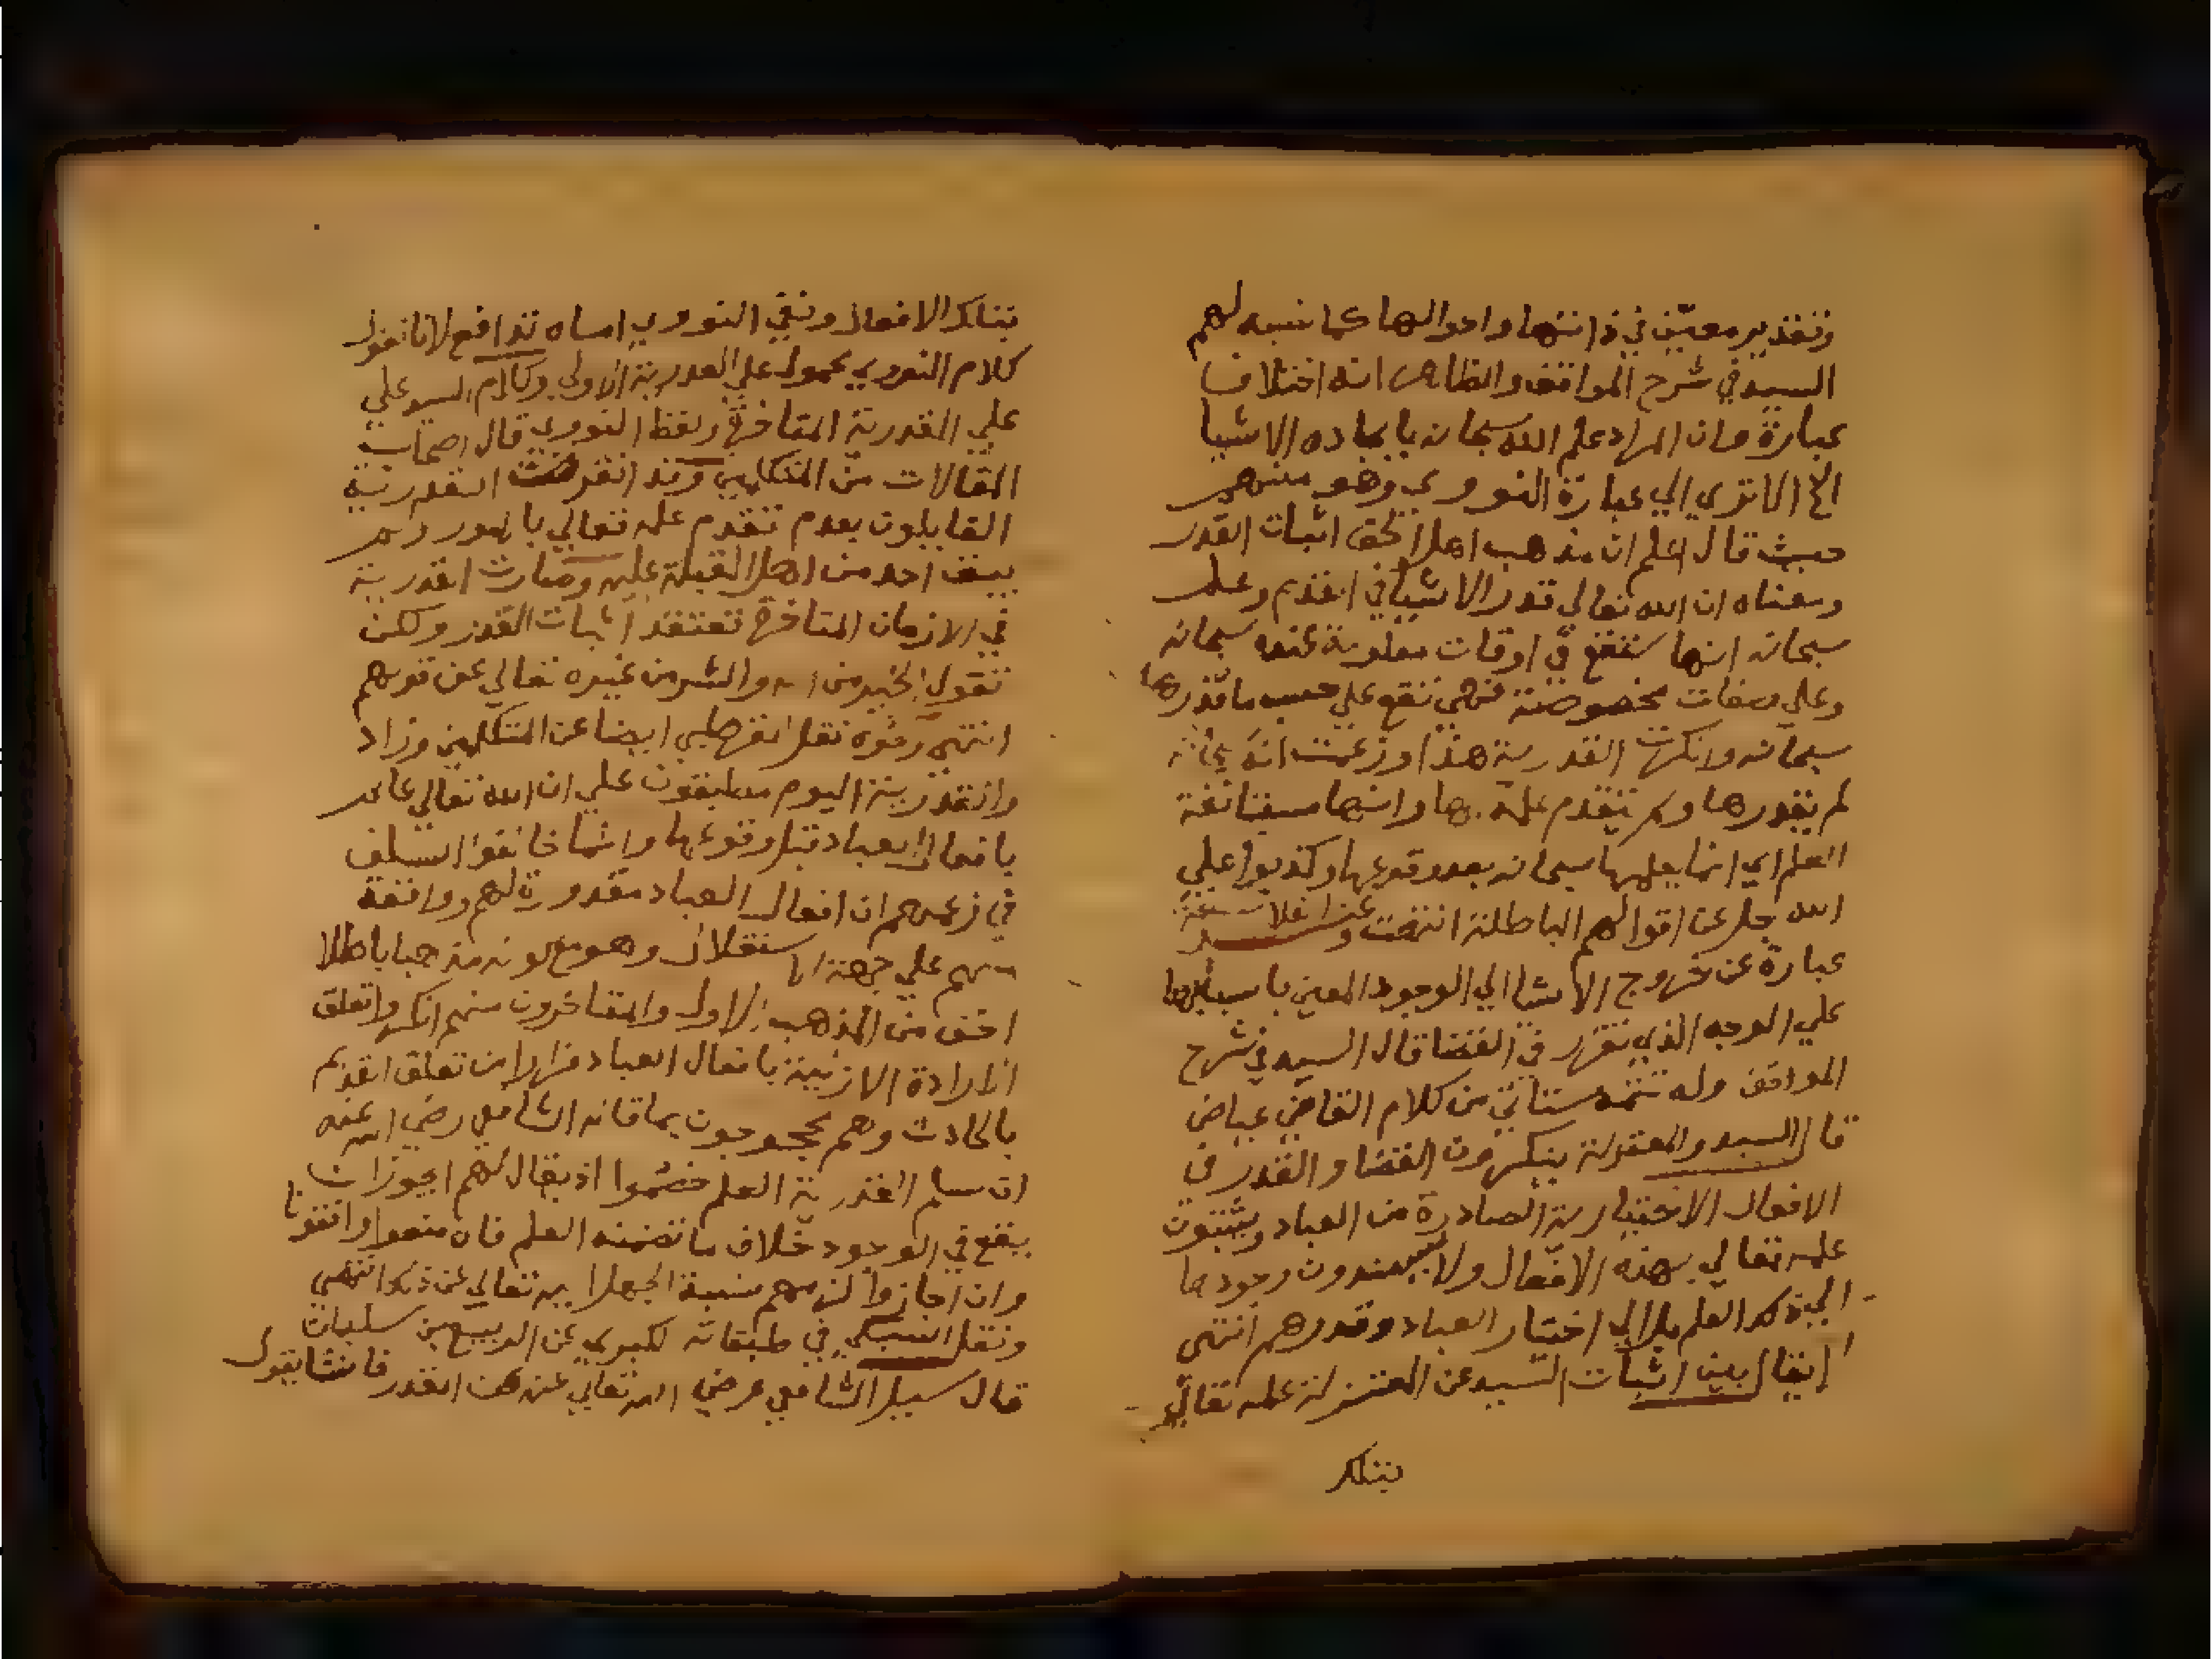 وتقدير معين في ذاتها واحوالها كما نسبه لهم
السيد في شرح المواقف والظاهر انه اختلاف
عبارة وان المراد علم الله سبحانه بايجاده الاشيا
الخ الا تري الي عبارة النووي وهو منتهي
حيث قال اعلم ان مذهب اهل الحق اثبات القدر
ومعناه ان الله تعالي قدر الاشيا في القدم وعلم
سبحانه انها ستقع في اوقات معلومة عنده سبحانه
وعلي صفات مخصوصة فهي تقع علي حسب ما قدرها
سبحانه وانكرت القدرية هذا وزعمت انه
لم يقدرها ولم يتقدم علمه بها وانها مستانفة
العلم اي انما يعلمها سبحانه بعد وقوعها وكذبوا علي
الله جل عن اقوالهم الباطلة انتهت وعند الفلاسفة
عبارة عن خروج الاشيا الي الوجود المعين باسبابها
علي الوجه الذي تقرر في القضا قال السيد في شرح
المواقف وله تتمة ستاتي من كلام القاضي عياض
قال السيد والمعتزلة ينكرون القضا والقدر في
الافعال الاختيارية الصادرة من العباد ويثبتون
علمه تعالي بهذه الافعال ولا يسندون وجودها
الي ذلك العلم بل الي اختيار العباد وقدرهم انتهي
لا يقال بين اثبات السيد عن المعتزلة علمه تعالي
بتلك
بتلك الافعال ونفي النووي اياه تدافع لانا نقول
كلام النووي محمول علي القدرية الاولي وكلام السيد علي
علي القدرية المتاخرة ولفظ النووي قال اصحاب
المقالات من المتكلمين وقد انقرضت القدرية
القايلون بعدم تقدم علمه تعالي بالامور ولم
يبق احد من اهل القبلة عليه وصارت القدرية
في الازمان المتاخرة تعتقد اثبات القدر ولكن
تقول الخير من الله والشر من غيره تعالي عن قولهم
انتهي ونحوه نقل القرطبي ايضا عن المتكلمين وزاد
والقدرية اليوم مطبقون علي ان الله تعالي عالم
بافعال العباد قبل وقوعها وانما خالفوا السلف
في زعمهم ان افعال العباد مقدورة لهم وواقعة
منهم علي جهة الاستقلال وهو مع كونه مذهبا باطلا
اخف من المذهب الاول والمتاخرون منهم انكروا تعلق
الارادة الازلية بافعال العباد فرارا من تعلق القديم
بالحادث وهم محجوجون بما قاله الشافعي رضي الله عنه
ان سلم القدرية العلم خصموا اذ يقال لهم ايجوز ان
يقع في الوجود خلاف ما تضمنه العلم فان منعوا وافقونا
وان اجازوا لزمهم نسبة الجهل اليه تعالي عن ذلك انتهي
ونقل السبكي في طبقاته الكبري عن الربيع بن سليمان
قال سيل الشافعي رضي الله تعالي عنه عن القدر فانشا يقول